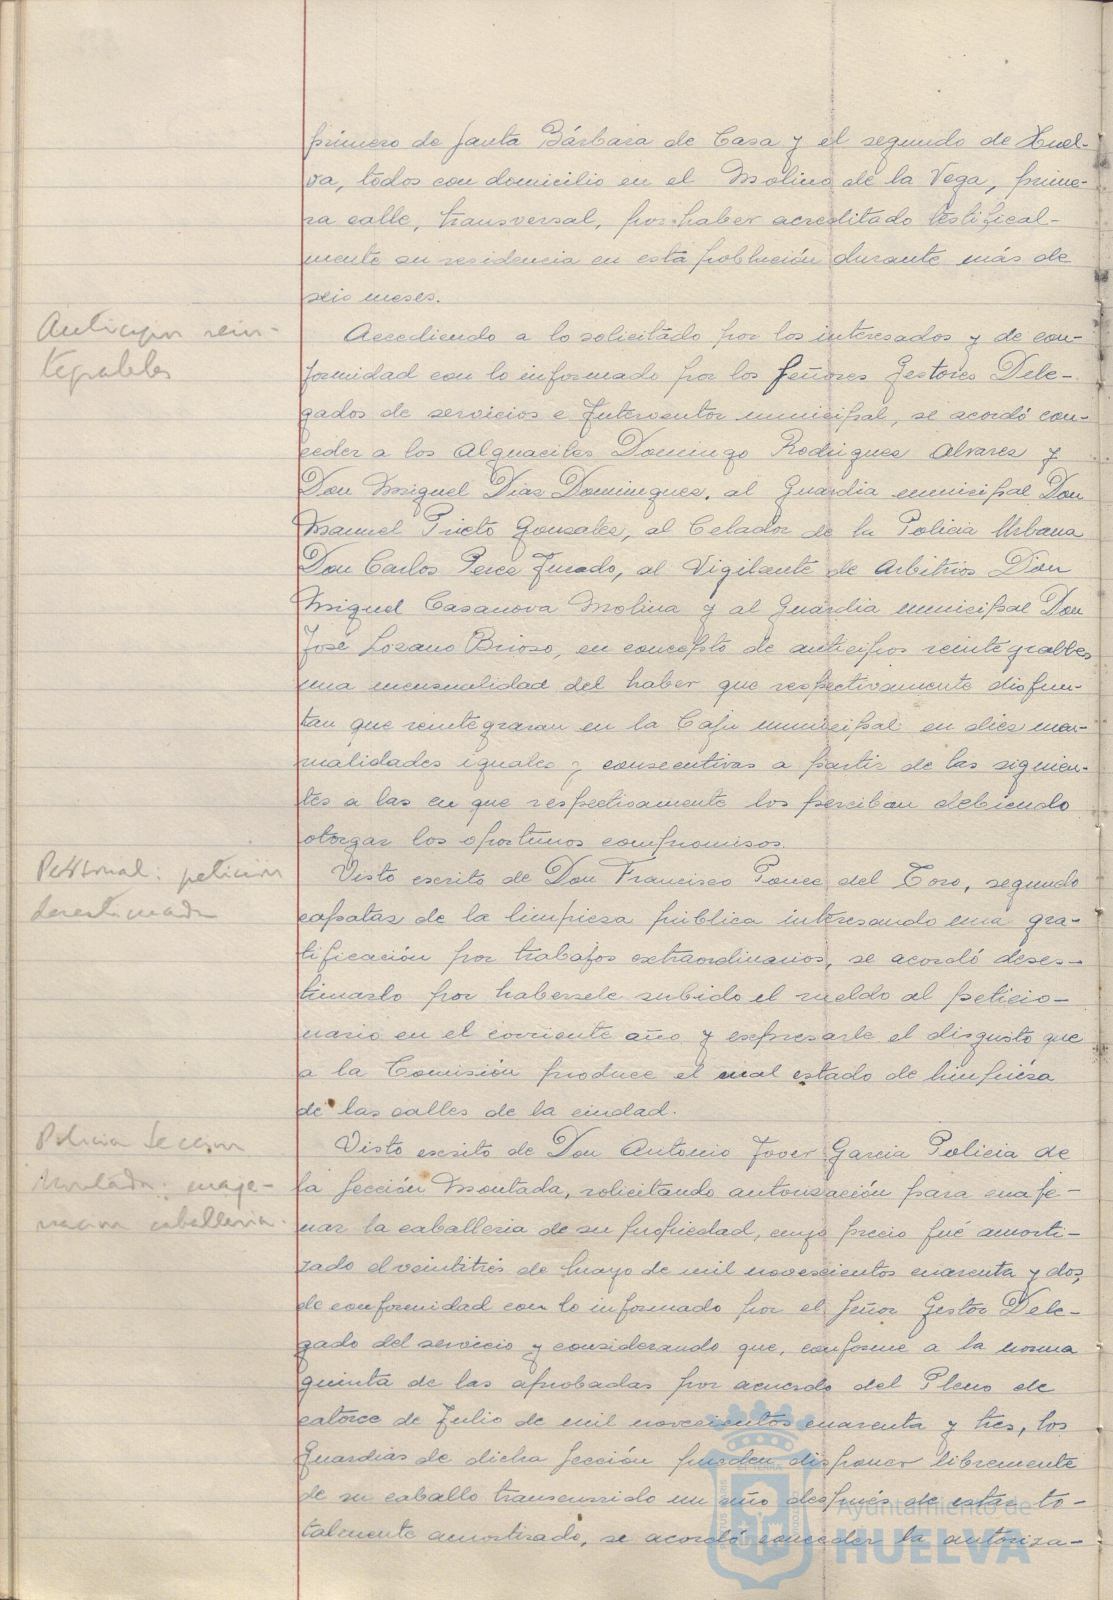 primero de Santa Bárbara de Casa y el segundo de Huel-
va, todos con domicilio en el Molino de la Vega, prime-
ra calle, transversal, por haber acreditado testifical-
mente su residencia en esta población durante más de
seis meses.
Anticipos rein-
tegrables
Accediendo a lo solicitado por los interesados y de con-
formidad con lo informado por los Señores Gestores Dele-
gados de servicios e Interventor municipal, se acordó con-
ceder a los Alguaciles Domingo Rodriguez Alvarez y
Don Miguel Diaz Dominguez, al Guardia municipal Don
Manuel Prieto Gonzalez, al Celador de la Policia Urbana
Don Carlos Perez Jurado, al Vigilante de Arbitrios Don
Miguel Casanova Molina y al Guardia municipal Don
José Lozano Brioso, en concepto de anticipos reintegrables
una mensualidad del haber que respectivamente disfru-
tan que reintegraran en la Caja municipal en diez men-
sualidades iguales y consecutivas a partir de las siguien-
tes a las en que respectivamente los perciban debiendo
otorgar los oportunos compromisos.
Personal: peticion
desestimada
Visto escrito de Don Francisco Ponce del Toro, segundo
capataz de la limpieza pública interesando una gra-
tificación por trabajos extraordinarios, se acordó deses-
timarlo por habersele subido el sueldo al peticio-
nario en el corriente año y expresarle el disgusto que
a la Comisión produce el mal estado de limpieza
de las calles de la ciudad.
Policia Seccion
Montada: enaje-
nacion caballeria.
Visto escrito de Don Antonio Jover Garcia Policia de
la Sección Montada, solicitando autorización para enaje-
nar la caballeria de su propiedad, cuyo precio fué amorti-
zado el veintitrés de Mayo de mil novecientos cuarenta y dos,
de conformidad con lo informado por el Señor Gestor Dele-
gado del servicio y considerando que, conforme a la norma
quinta de las aprobadas por acuerdo del Pleno de
catorce de Julio de mil novecientos cuarenta y tres, los
Guardias de dicha Sección pueden disponer libremente
de su caballo transcurrido un año después de estar to-
talmente amortizado, se acordó conceder la autoriza-
Ayuntamiento de
HUELVA